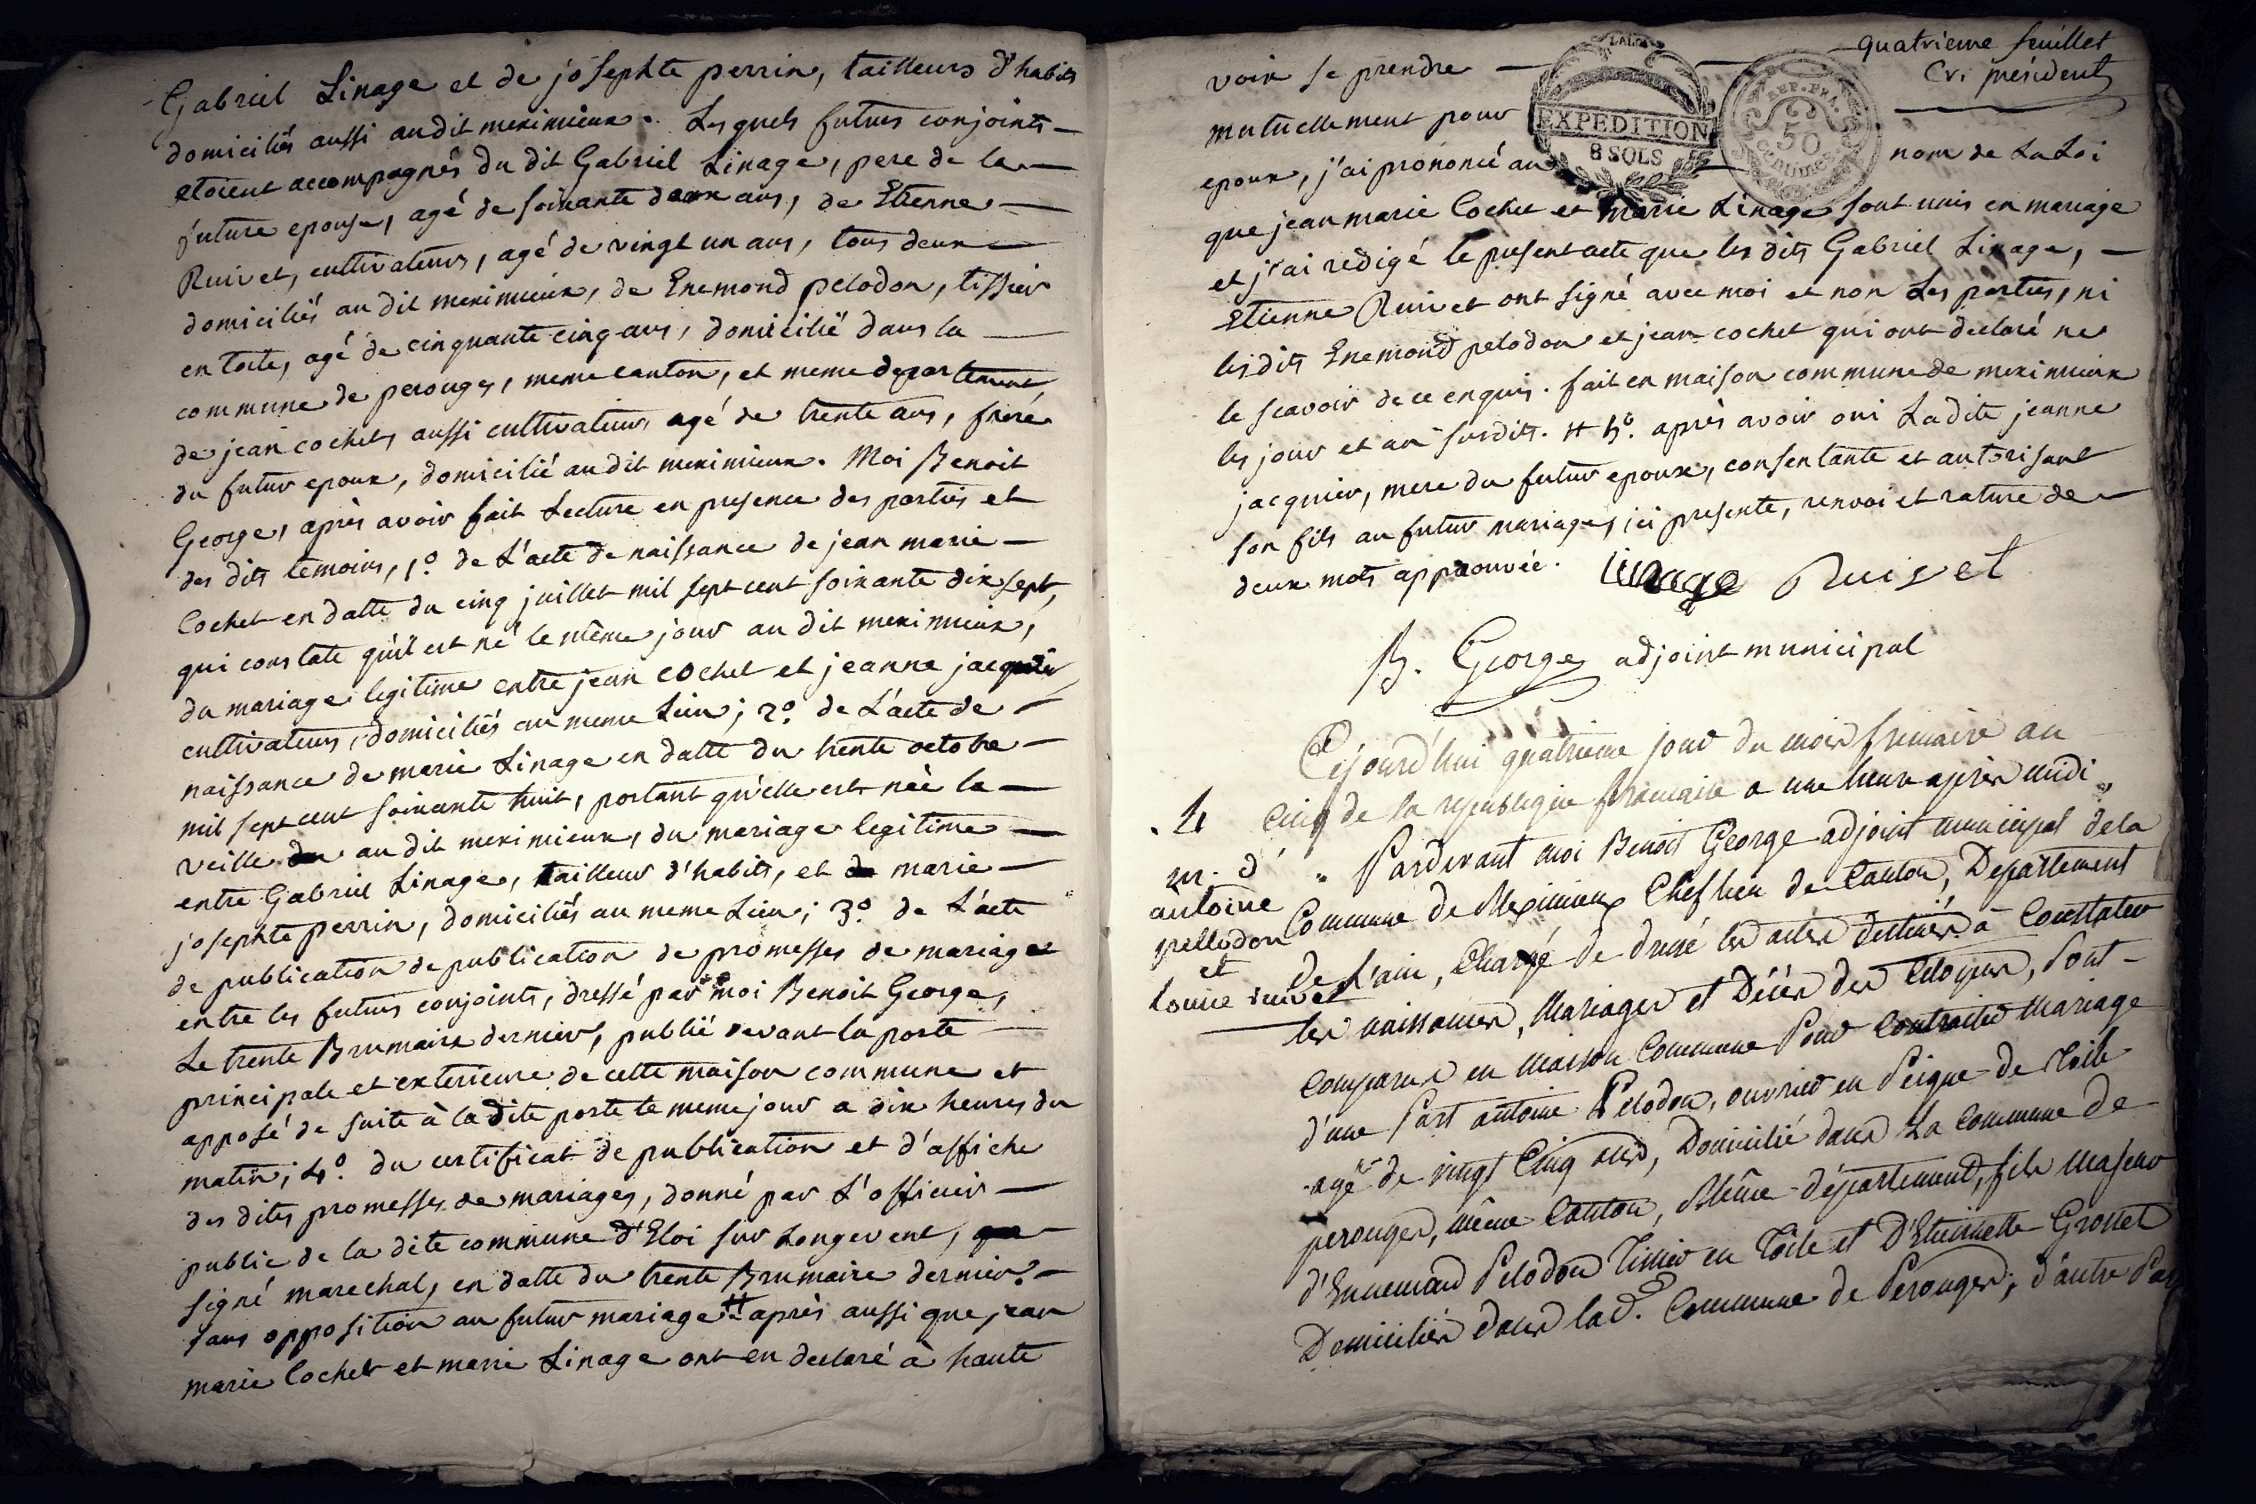 Gabriel Linage et de josephte perrin, tailleurs d'habits
domiciliés aussi audit meximieux. Lesquels futurs conjoints
etoient accompagnés du dit Gabriel Linage, pere de la
future epouse, agé de soixante deux ans, de Etienne
Ruivet, cultivateurs, agé de vingt un ans, tous deux
domiciliés au dit meximieux, de Enemond pelodon, tissier
en toile, agé de cinquante cinq ans, domicilié dans la
commune de perouges, meme canton, et meme departement
de jean cochet, aussi cultivateur agé de trente ans, frere
du futur epoux, domicilié au dit meximieux. Moi Benoit
George, après avoir fait Lecture en presence des parties et
des dits temoins, 1º. de L'acte de naissance de jean marie
Cochet en datte du cinq juillet mil sept cent soixante dix sept,
qui constate qu'il est né le même jour au dit meximieux,
du mariage legitime entre jean cochet et jeanne jacquier
cultivateurs, domiciliés au meme Lieu; 2º. de L'acte de
naissance de marie Linage en datte du trente octobre
mil sept cent soixante huit, portant qu'elle est née la
veille au dit meximieux, du mariage legitime
entre Gabriel Linage, tailleur d'habits, et marie
josephte perrin, domiciliés au meme Lieu; 3º. de L'acte
de publication de publication de promesses de mariage
entre les futurs conjoints, dressé par moi Benoit George,
Le trente Brumaire dernier, publié devant la porte
principale et exterieure de cette maison commune et
apposé de suite à la dite porte le meme jour a dix heures du
matin; 4º. du certificat de publication et d'affiche
des dites promesses de mariages, donné par L'officier
public de la dite commune d'Eloi sur Longevent,
signé marechal, en datte du trente Brumaire dernier.
sans opposition au futur mariage # après aussi que jean
marie Cochet et marie Linage ont en declaré à haute
quatrieme feuillet
président
voix se prendre
mutuellement pour
EXPEDITION
8 SOLS
REP. FRA.
50
CENTIMES
epoux, j'ai prononcé au nom de La Loi
que jean marie Cochet et marie Linage sont unis en mariage
et j'ai redigé le present acte que les dits Gabriel Linage,
Etienne Ruivet ont signé avec moi et non Les parties, ni
lesdits Enemond pelodon et jean cochet qui ont declaré ne
le scavoir de ce enquis. fait en maison commune de meximieux
les jour et an susdits. # 5º. après avoir oui Ladite jeanne
jacquier, mere du futur epoux, consentante et autorisant
son fils au futur mariage, ici presente, renvoi et rature de
deux mots approuvée. Linage Ruivet
B. George adjoint municipal
Cejourd'hui quatrieme jour du mois frimaire an
Cinq de la republique francaise a une heure après midi
Pardevant moi Benoit George adjoint municipal de la
Commune de Meximieux Chef lieu de Canton, Departement
de l'ain, Chargé de dressé les actes destinés à Constater
les naissances, Mariages et Décès des Citoyens, sont
comparus en maison Commune Pour Contracter Mariage
d'une Part antoine Pelodon, ouvrier en Peigne de Toile
agé de vingt Cinq ans, Domicilié dans La Commune de
perouges, même Canton, Même département, fils Majeur
d'Ennemand Pelodon Tissier en Toile et D'Etiennette Grosset
Domiciliés dans lad. Commune de Perouges; d'autre Par
4
m. d'
antoine
pellodon
et
Louise ruivet